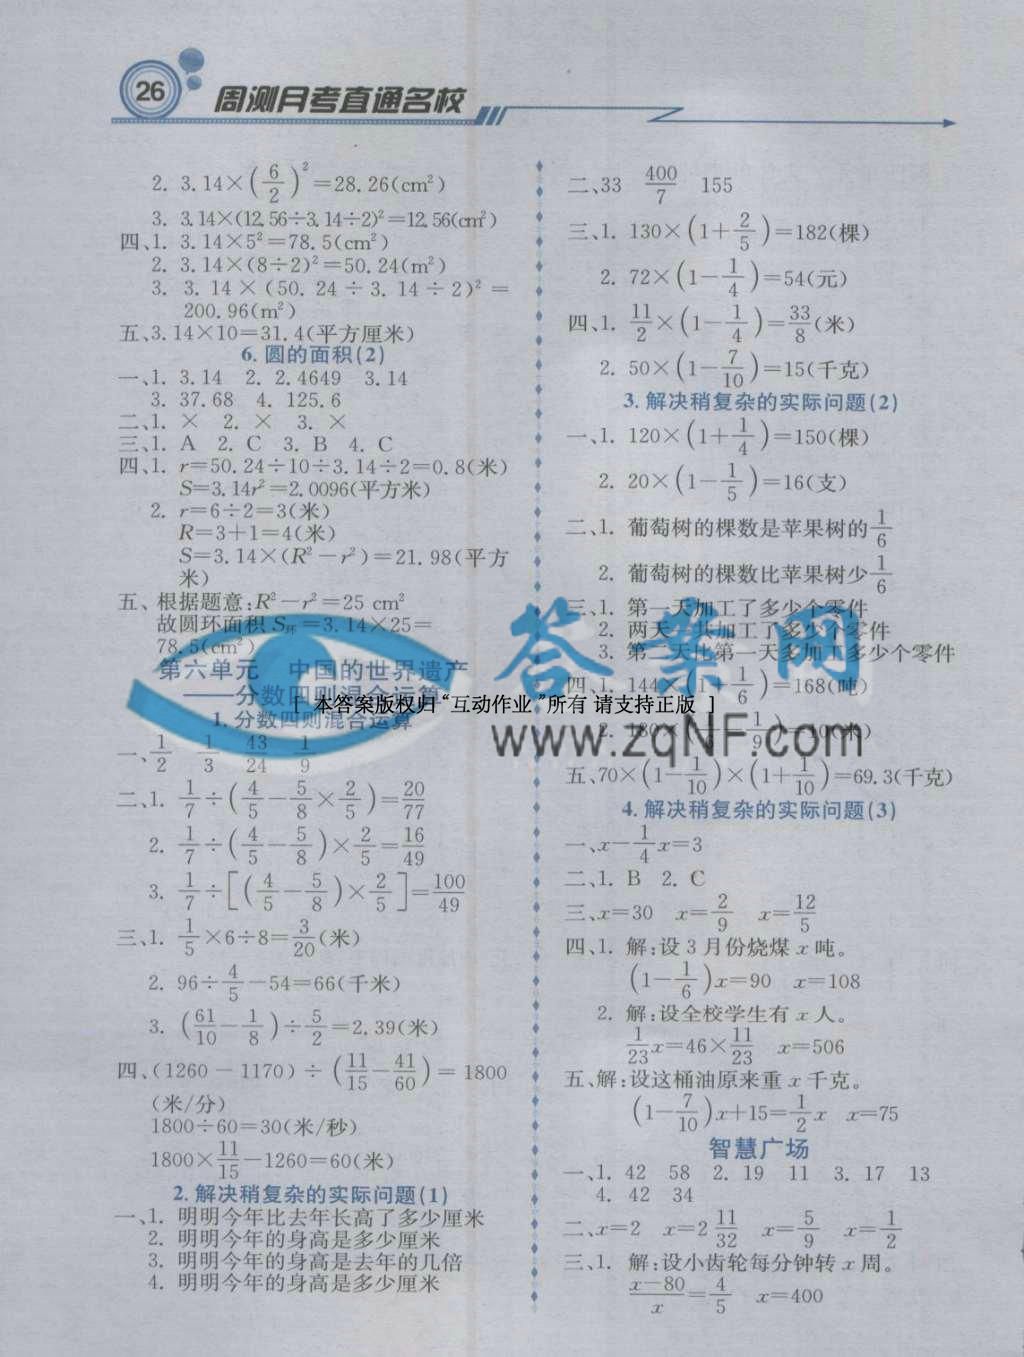 26
周测月考直通名校
2. 3.14×(6/2)²=28.26(cm²)
3. 3.14×(12.56÷3.14÷2)²=12.56(cm²)
四、1. 3.14×5²=78.5(cm²)
2. 3.14×(8÷2)²=50.24(m²)
3. 3.14×(50.24÷3.14÷2)²=
200.96(m²)
五、3.14×10=31.4(平方厘米)
6. 圆的面积(2)
一、1. 3.14 2. 2.4649 3.14
3. 37.68 4. 125.6
二、1. × 2. × 3. ×
三、1. A 2. C 3. B 4. C
四、1. r=50.24÷10÷3.14÷2=0.8(米)
S=3.14r²=2.0096(平方米)
2. r=6÷2=3(米)
R=3+1=4(米)
S=3.14×(R²-r²)=21.98(平方
米)
五、根据题意:R²-r²=25 cm²
故圆环面积S环=3.14×25=
78.5(cm²)
第六单元 中国的世界遗产
——分数四则混合运算
1. 分数四则混合运算
一、1/2 1/3 43/24 1/9
二、1. 1/7÷(4/5-5/8×2/5)=20/77
2. 1/7÷(4/5-5/8)×2/5=16/49
3. 1/7÷[(4/5-5/8)×2/5]=100/49
三、1. 1/5×6÷8=3/20(米)
2. 96÷4/5-54=66(千米)
3. (61/10-1/8)÷5/2=2.39(米)
四、(1260-1170)÷(11/15-41/60)=1800
(米/分)
1800÷60=30(米/秒)
1800×11/15-1260=60(米)
2. 解决稍复杂的实际问题(1)
一、1. 明明今年比去年长高了多少厘米
2. 明明今年的身高是多少厘米
3. 明明今年的身高是去年的几倍
4. 明明今年的身高是多少厘米
二、33 400/7 155
三、1. 130×(1+2/5)=182(棵)
2. 72×(1-1/4)=54(元)
四、1. 11/2×(1-1/4)=33/8(米)
2. 50×(1-7/10)=15(千克)
3. 解决稍复杂的实际问题(2)
一、1. 120×(1+1/4)=150(棵)
2. 20×(1-1/5)=16(支)
二、1. 葡萄树的棵数是苹果树的1/6
2. 葡萄树的棵数比苹果树少1/6
三、1. 第一天加工了多少个零件
2. 两天一共加工了多少个零件
3. 第二天比第一天多加工多少个零件
四、1. 144 1/6)=168(吨)
2. 180×(1- 1/9 (米)
五、70×(1-1/10)×(1+1/10)=69.3(千克)
4. 解决稍复杂的实际问题(3)
一、x-1/4x=3
二、1. B 2. C
三、x=30 x=2/9 x=12/5
四、1. 解:设3月份烧煤x吨。
(1-1/6)x=90 x=108
2. 解:设全校学生有x人。
1/23x=46×11/23 x=506
五、解:设这桶油原来重x千克。
(1-7/10)x+15=1/2x x=75
智慧广场
一、1. 42 58 2. 19 11 3. 17 13
4. 42 34
二、x=2 x=2 11/32 x=5/9 x=1/2
三、1. 解:设小齿轮每分钟转x周。
(x-80)/x=4/5 x=400
答案网
[ 本答案版权归“互动作业”所有 请支持正版 ]
www.zqNF.com